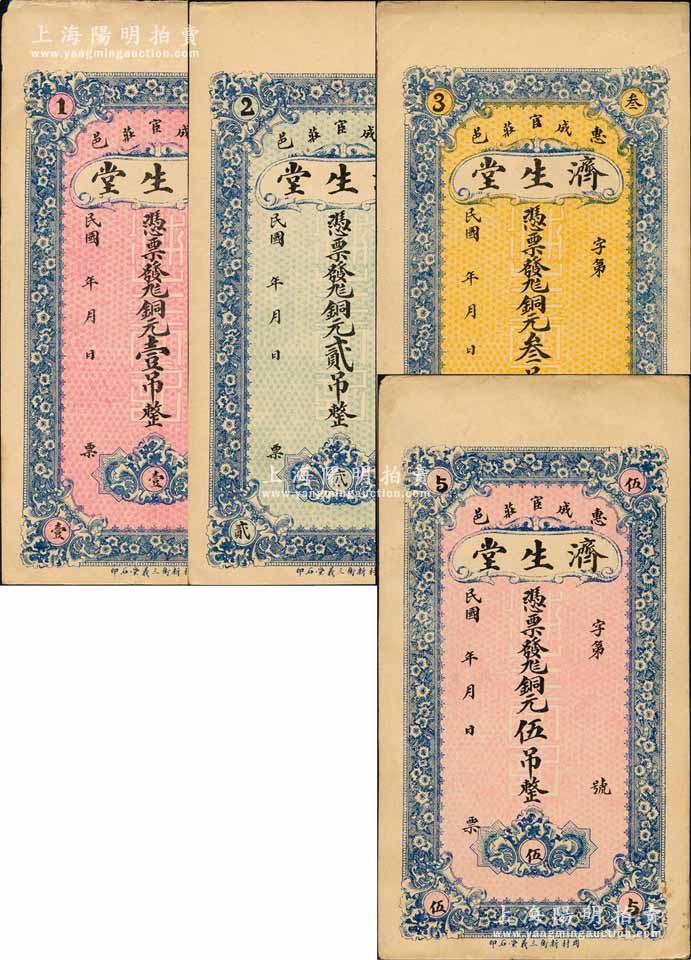 上海陽明拍賣
www.yangmingauction.com
1
城官莊邑
生堂
憑票發九八銅元壹吊整
民國 年 月 日
票
壹
壹
新街三義堂石印
2
城官莊邑
生堂
憑票發九八銅元貳吊整
民國 年 月 日
票
貳
貳
新街三義堂石印
3
叁
惠城官莊邑
濟生堂
字第
憑票發九八銅元叁吊
民國 年 月 日
上海陽明拍賣
www.yangmingauction.com
5
伍
惠城官莊邑
濟生堂
字第 號
憑票發九八銅元伍吊整
民國 年 月 日
票
伍
伍
5
新街三義堂石印
上海陽明拍賣
www.yangmingauction.com